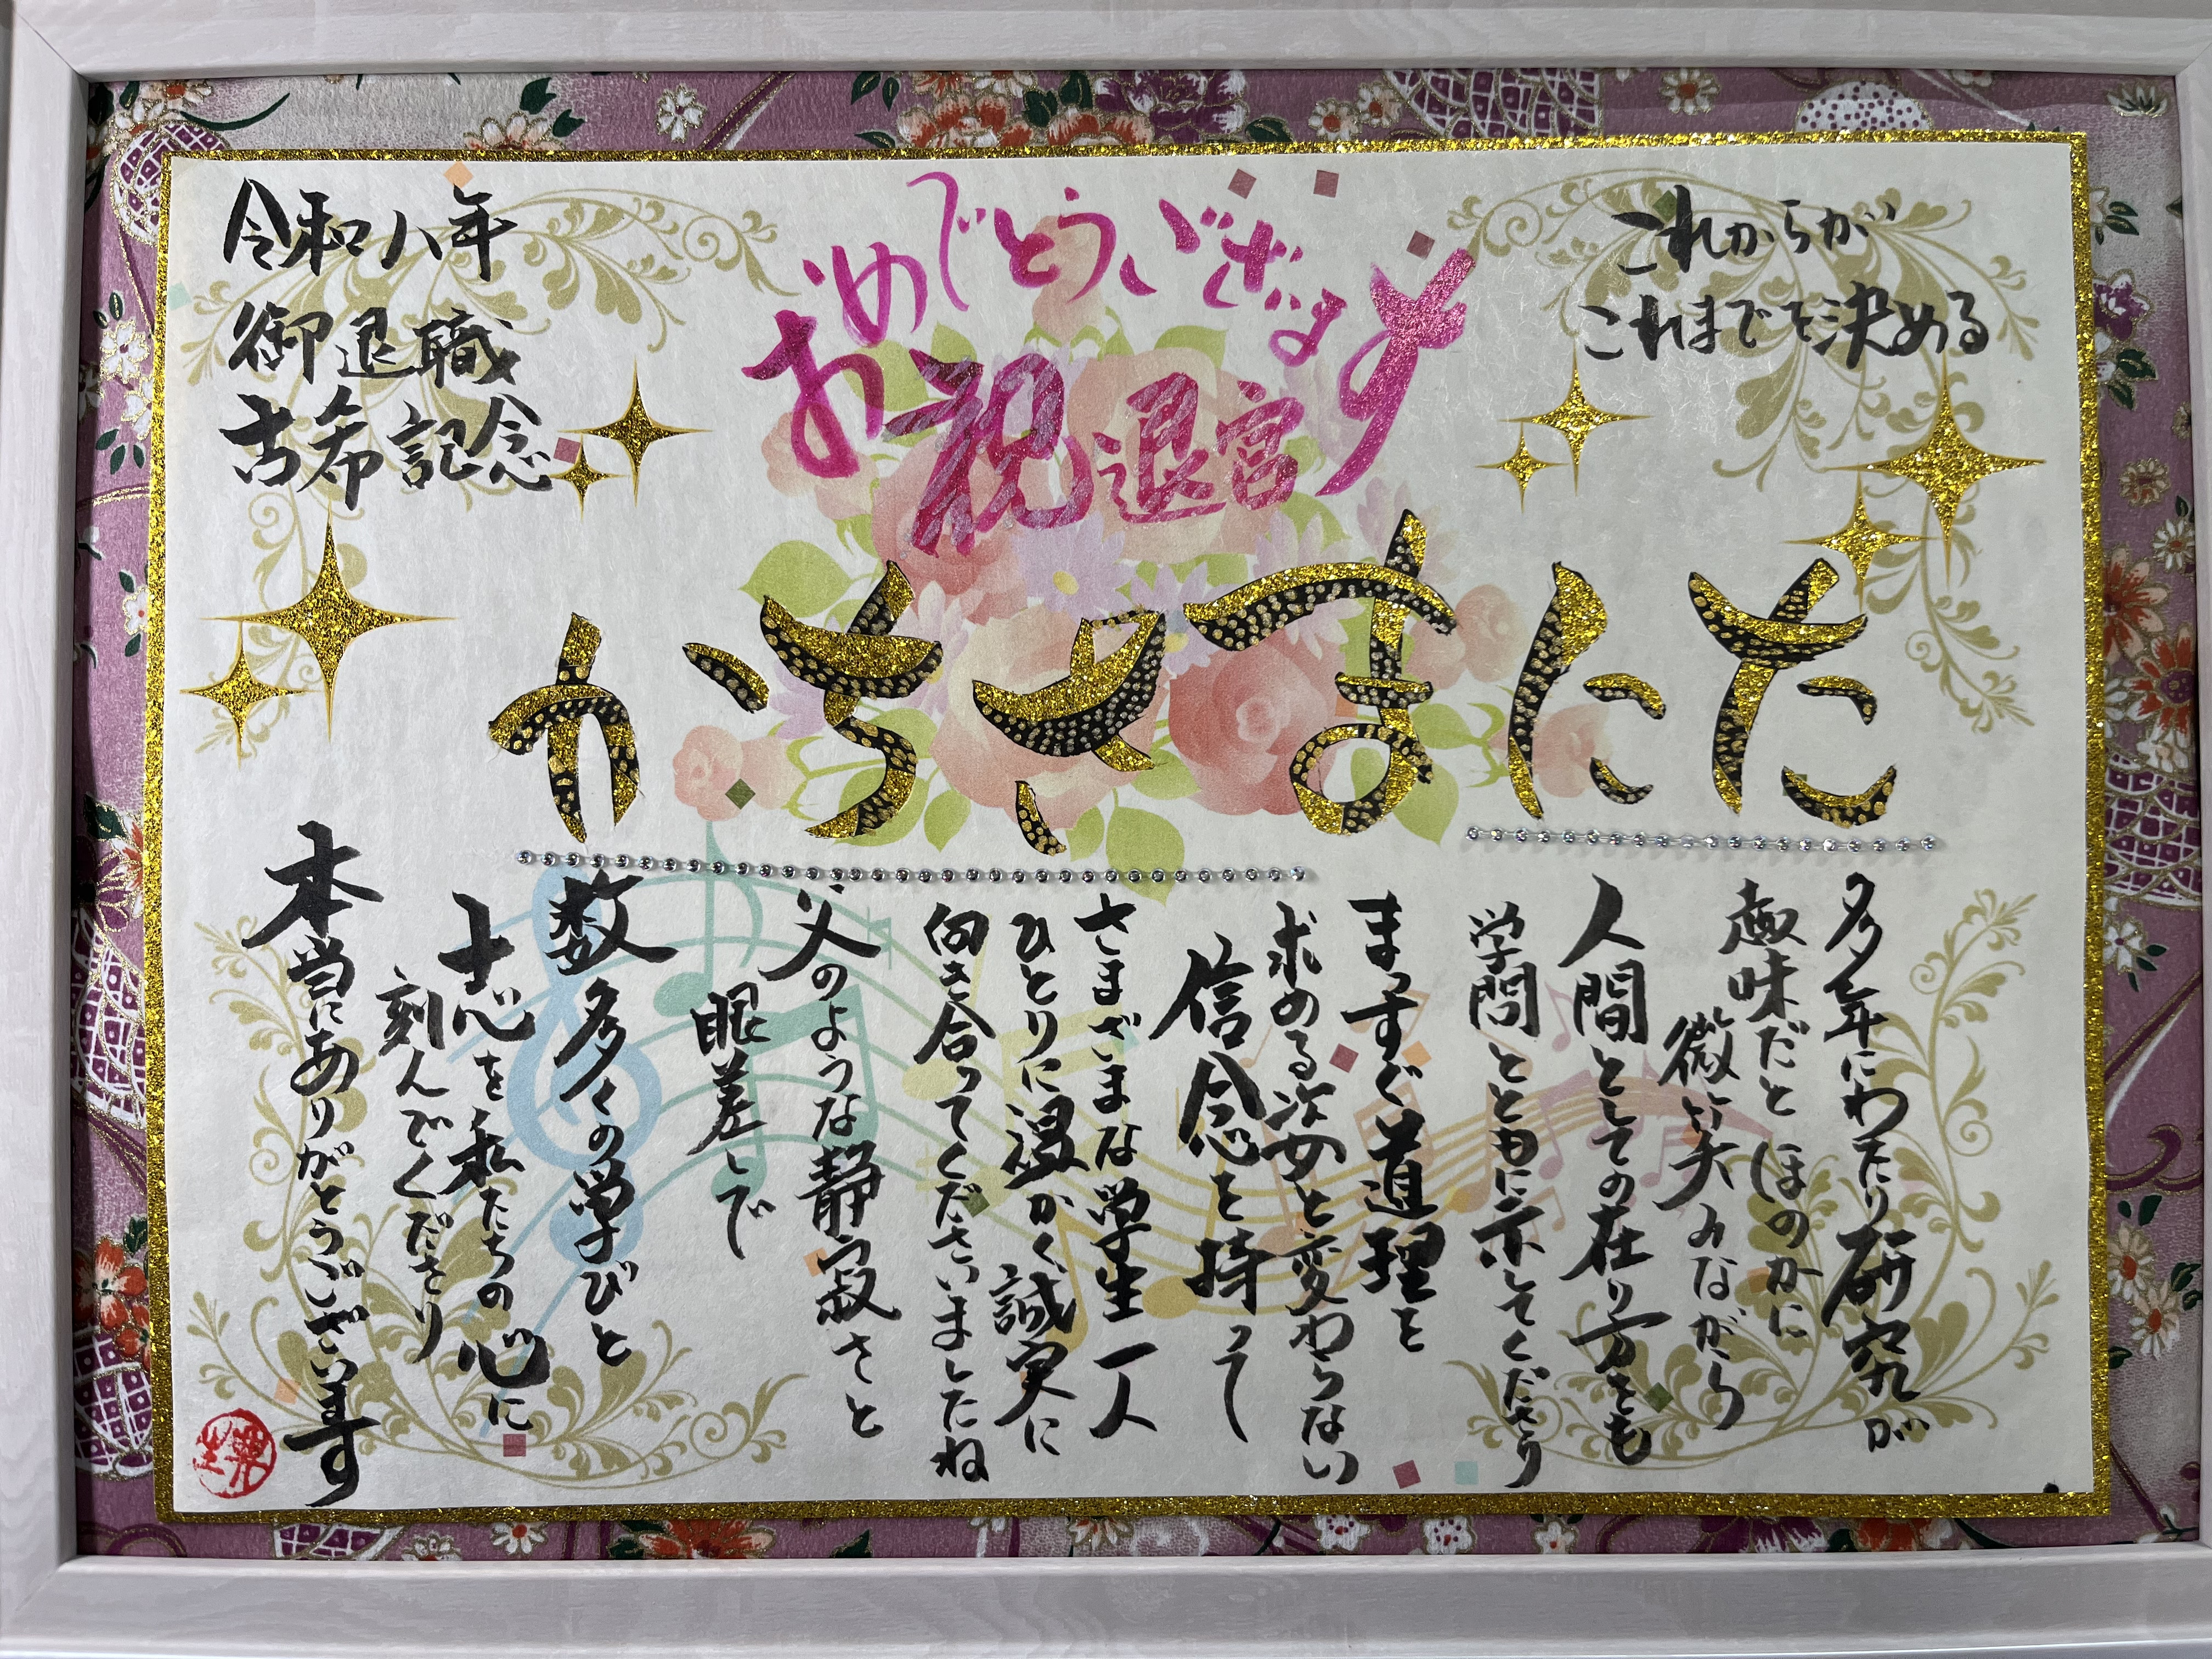 これからが
これまでを決める
おめでとうございます
祝退官
令和八年
御退職
古希記念
たにまさちか
多年にわたり研究が
趣味だとほのかに
微笑みながら
人間としての在り方をも
学問とともに示してくださり
まっすぐ道理を
求める姿と変わらない
信念を持って
さまざまな学生一人
ひとりに温かく誠実に
向き合ってくださいましたね
父のような静寂さと
眼差しで
数多くの学びと
志を私たちの心に
刻んでくださり
本当にありがとうございます